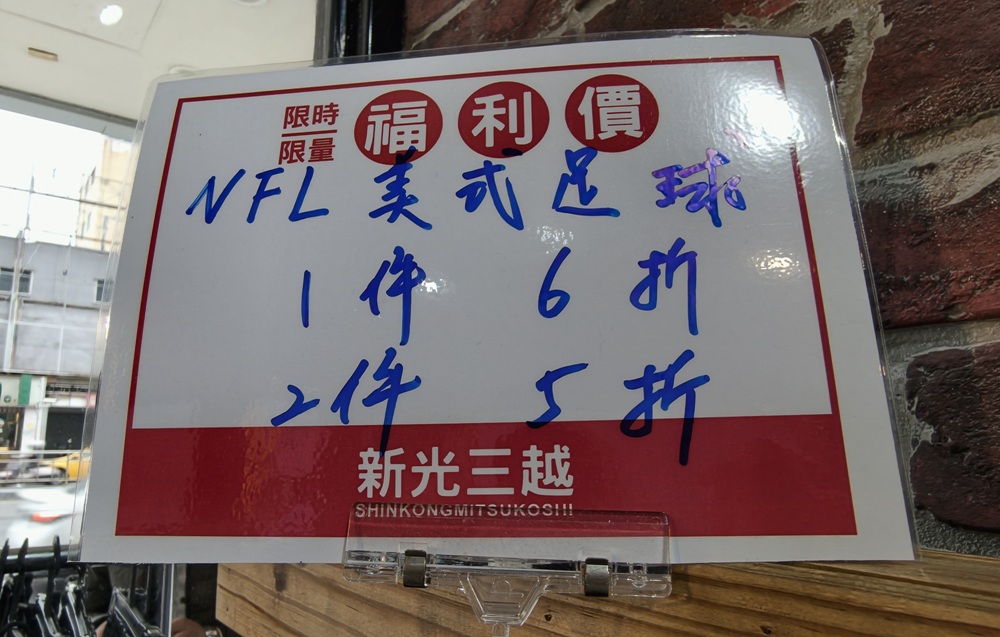 限時
限量
福利價
NFL 美式足球
1件 6折
2件 5折
新光三越
SHINKONGMITSUKOSHI